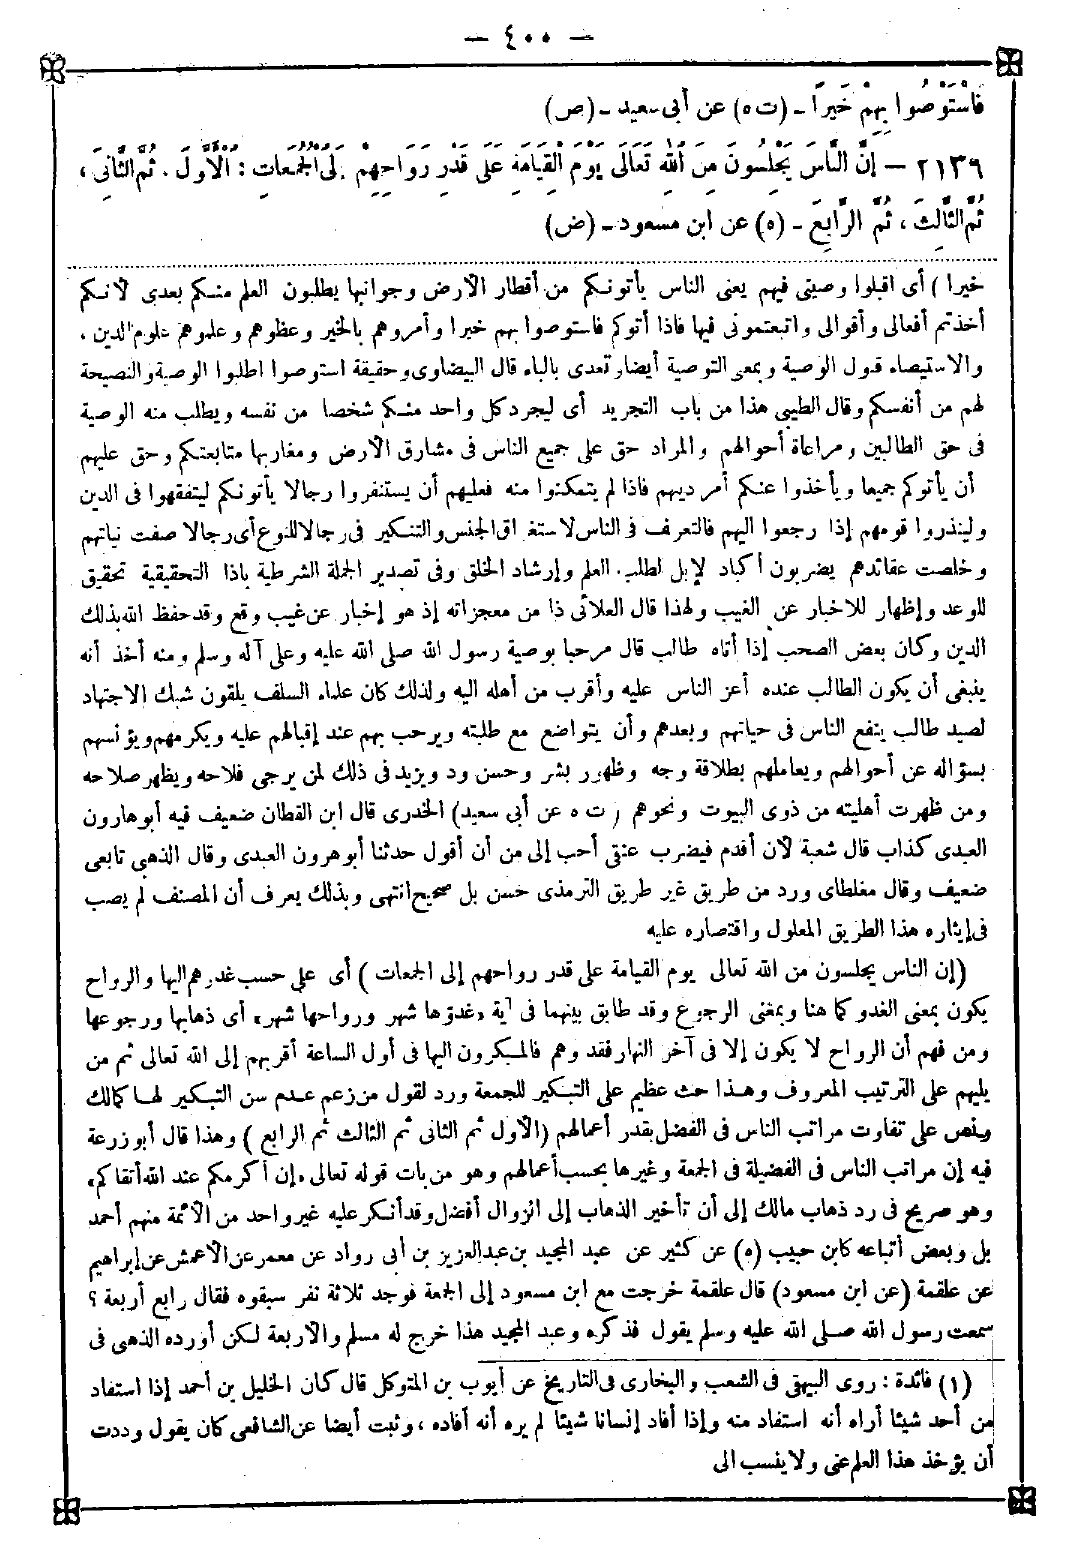 - ٤٠٠ -
فَاسْتَوْصُوا بِهِمْ خَيراً - (ت ه) عن أبى سعيد - (ص)
٢١٣٩ - إِنَّ النَّاسَ يَجْلِسُونَ مِنَ اللهِ تَعَالَى يَوْمَ الْقِيَامَةِ عَلَى قَدْرِ رَوَاحِهِمْ إِلَى الْجُمُعَاتِ : الْأَوَّلَ . ثُمَّ الثَّانِىَ ،
ثُمَّ الثَّالِثَ ، ثُمَّ الرَّابِعَ - (ه) عن ابن مسعود - (ض)
خيرا ) أى اقبلوا وصيتى فيهم يعنى الناس يأتونكم من أقطار الأرض وجوانبها يطلبون العلم منكم بعدى لأنكم
أخذتم أفعالى وأقوالى واتبعتمونى فيها فاذا أتوكم فاستوصوا بهم خيرا وأمروهم بالخير وعظوهم وعلموهم علوم الدين ،
والاستيصاء قبول الوصية وبمعى التوصية أيضا وتعدى بالباء قال البيضاوى وحقيقة استوصوا اطلبوا الوصية والنصيحة
لهم من أنفسكم وقال الطيبى هذا من باب التجريد أى ليجرد كل واحد منكم شخصا من نفسه ويطلب منه الوصية
فى حق الطالبين ومراعاة أحوالهم والمراد حق على جميع الناس فى مشارق الأرض ومغاربها متابعتكم وحق عليهم
أن يأتوكم جميعا ويأخذوا عنكم أمر دينهم فاذا لم يتمكنوا منه فعليهم أن يستنفروا رجالا يأتونكم ليتفقهوا فى الدين
ولينذروا قومهم إذا رجعوا اليهم فالتعرف فى الناس لاستغراق الجنس والتنكير فى رجالا للنوع أى رجالا صفت نياتهم
وخلصت عقائدهم يضربون أكباد الإبل لطلب العلم وإرشاد الخلق وفى تصدير الجملة الشرطية باذا التحقيقية تحقيق
للوعد وإظهار للاخبار عن الغيب ولهذا قال العلائى ذا من معجزاته إذ هو إخبار عن غيب وقع وقد حفظ الله بذلك
الدين وكان بعض الصحب إذا أتاه طالب قال مرحبا بوصية رسول الله صلى الله عليه وعلى آله وسلم ومنه أخذ أنه
ينبغى أن يكون الطالب عنده أعز الناس عليه وأقرب من أهله اليه ولذلك كان علماء السلف يلقون شبك الاجتهاد
لصيد طالب ينفع الناس فى حياتهم وبعدهم وأن يتواضع مع طلبته ويرحب بهم عند إقبالهم عليه ويكرمهم ويؤنسهم
بسؤاله عن أحوالهم ويعاملهم بطلاقة وجه وظهور بشر وحسن ود ويزيد فى ذلك لمن يرجى فلاحه ويظهر صلاحه
ومن ظهرت أهليته من ذوى البيوت ونحوهم ( ت ه عن أبى سعيد) الخدرى قال ابن القطان ضعيف فيه أبو هارون
العبدى كذاب قال شعبة لأن أقدم فيضرب عنقى أحب إلى من أن أقول حدثنا أبو هرون العبدى وقال الذهبى تابعى
ضعيف وقال مغلطاى ورد من طريق غير طريق الترمذى حسن بل صحيح انتهى وبذلك يعرف أن المصنف لم يصب
فى إيثاره هذا الطريق المعلول واقتصاره عليه
(إن الناس يجلسون من الله تعالى يوم القيامة على قدر رواحهم إلى الجمعات ) أى على حسب غدوهم اليها والرواح
يكون بمعنى الغدو كما هنا وبمعنى الرجوع وقد طابق بينهما فى آية «غدوّها شهر ورواحها شهر» أى ذهابها ورجوعها
ومن فهم أن الرواح لا يكون إلا فى آخر النهار فقد وهم فالمبكرون اليها فى أول الساعة أقربهم إلى الله تعالى ثم من
يليهم على الترتيب المعروف وهذا حث عظيم على التبكير للجمعة ورد لقول من زعم عدم سن التبكير لها كمالك
ونص على تفاوت مراتب الناس فى الفضل بقدر أعمالهم (الأول ثم الثانى ثم الثالث ثم الرابع ) وهذا قال أبو زرعة
فيه إن مراتب الناس فى الفضيلة فى الجمعة وغيرها بحسب أعمالهم وهو من بات قوله تعالى «إن أكرمكم عند الله أتقاكم»
وهو صريح فى رد ذهاب مالك إلى أن تأخير الذهاب إلى الزوال أفضل وقد أنكر عليه غير واحد من الأئمة منهم أحمد
بل وبعض أتباعه كابن حبيب (ه) عن كثير عن عبد المجيد بن عبد العزيز بن أبى رواد عن معمر عن الأعمش عن إبراهيم
عن علقمة (عن ابن مسعود) قال علقمة خرجت مع ابن مسعود إلى الجمعة فوجد ثلاثة نفر سبقوه فقال رابع أربعة ؟
سمعت رسول الله صلى الله عليه وسلم يقول فذكره وعبد المجيد هذا خرج له مسلم والأربعة لكن أورده الذهبى فى
(١) فائدة : روى البيهقى فى الشعب والبخارى فى التاريخ عن أيوب بن المتوكل قال كان الخليل بن أحمد إذا استفاد
من أحد شيئا أراه أنه استفاد منه وإذا أفاد إنسانا شيئا لم يره أنه أفاده ، وثبت أيضا عن الشافعى كان يقول وددت
أن يؤخذ هذا العلم عنى ولا ينسب الى